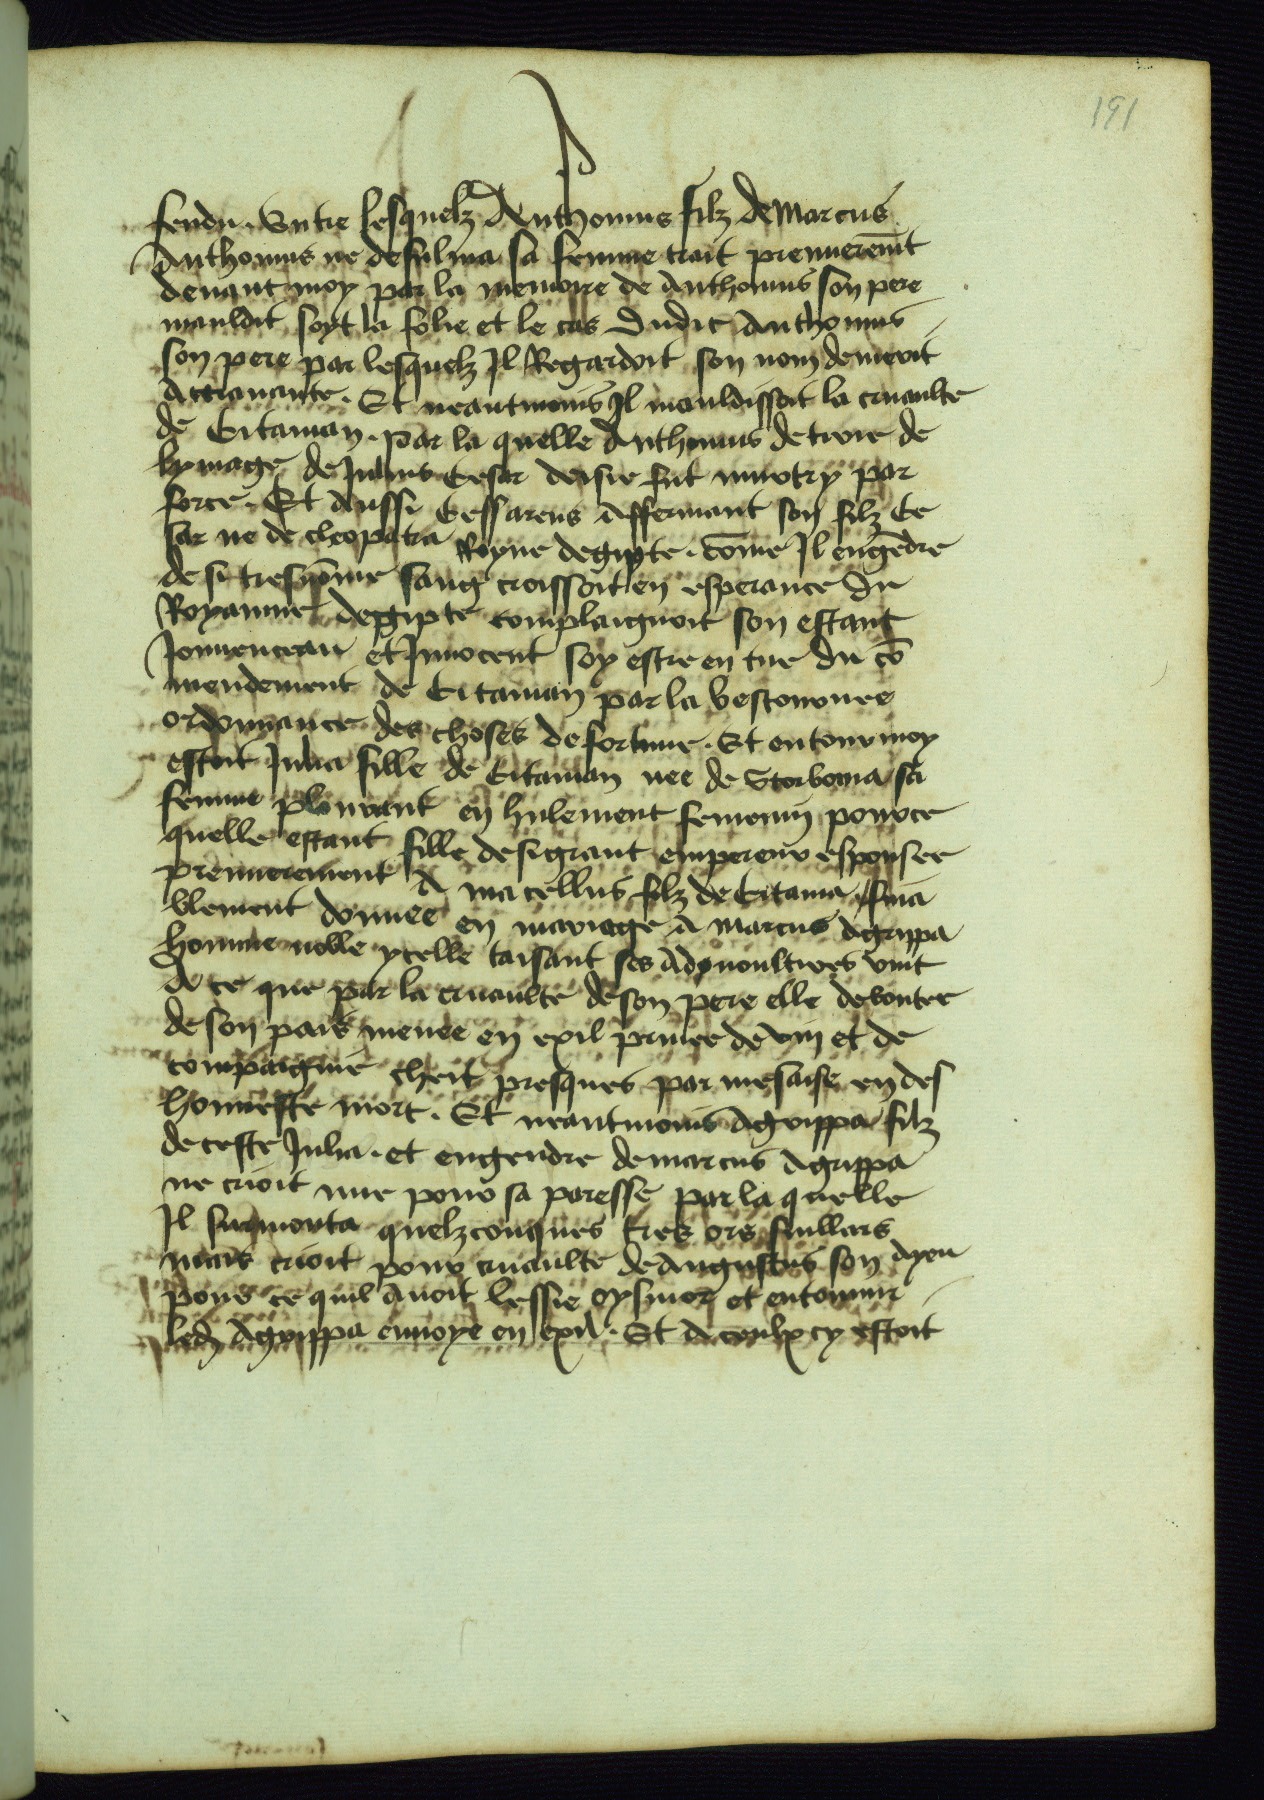 191
fendu. Entre lesquelz Anthonius filz de Marcus
Anthonius ne de fulvia sa femme trait premieremēt
devant moy par la memoire de Anthonius son pere
mauldit soyt la folie et le cas dudit Anthonius
son pere par lesquelz Il Regardoit son nom demerit
Acravante. Et neantmoins Il mauldissoit la cruaulte
de Octavian. par la quelle Anthonius de
lymage de Julius Cesar fut murtry par
force. Et Aussi Cessareus Affermant son filz Ce
sar ne de cleopatra Royne degipte. cōme Il engēdre
de si sang croissoit en esperance du
Royaume degipte complaignoit son estant
Jouvenceau et Innocent soy estre en tue du cō
mendement de Octavian par la bestournee
ordonnance des choses de fortune. Et entour moy
estoit Julia fille de Octavian nee de Scorbonia sa
femme plourant en hulement femenin pource
quelle estant fille de si grant empereur espousee
premierement A marcellus filz de Octavia fina
blement donnee en mariage A Marcus Agrippa
homme noble ycelle taisant ses Advoultires vint
A ce que par la cruaulte de son pere elle deboutee
de son pais menee en exil privee de vin et de
compaignie cheit presques par mesaise en des
honneste mort. Et neantmoins Agrippa filz
de ceste Julia. et engendre de marcus Agrippa
ne crioit mie pour sa paresse par la quelle
Il surmonta quelzconques tres ors suillars
mais crioit pour cruaulte de Augustus son Ayeu
pour ce quil Avoit lessie et
ledz Agrippa envoye en exil. Et A ceulx cy estoit